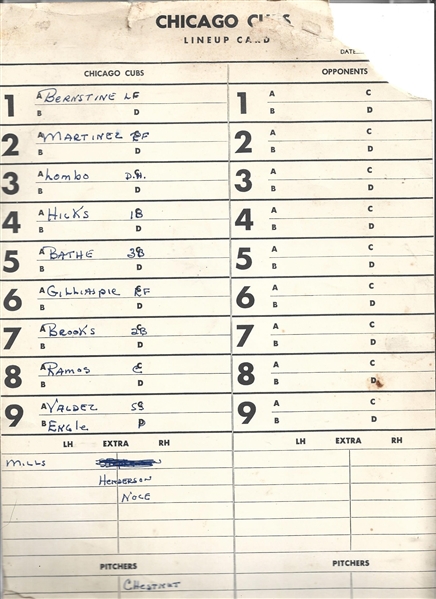 CHICAGO CUBS
LINEUP CARD
DATE
CHICAGO CUBS OPPONENTS
1 A BERNSTINE LF A C
B D B D
2 A MARTINEZ CF A C
B D B D
3 A Lombo D.H. A C
B D B D
4 A HICKS 1B A C
B D B D
5 A BATHE 3B A C
B D B D
6 A GILLIASPIE RF A C
B D B D
7 A BROOKS 2B A C
B D B D
8 A RAMOS C A C
B D B D
9 A VALDEZ SS A C
B ENGLE P B D
LH EXTRA RH LH EXTRA RH
MILLS
HENDERSON
NOCE
PITCHERS PITCHERS
CHESTNUT